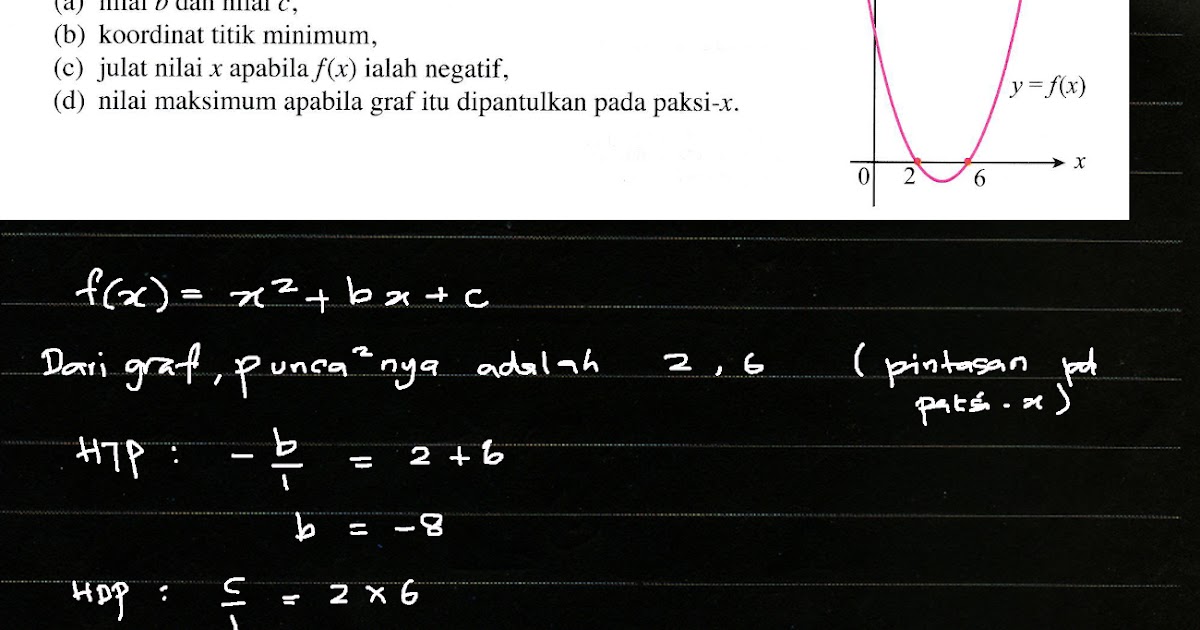 (a) nilai b dan nilai c,
(b) koordinat titik minimum,
(c) julat nilai x apabila f(x) ialah negatif,
(d) nilai maksimum apabila graf itu dipantulkan pada paksi-x.
y = f(x)
x
0 2 6
f(x) = x² + bx + c
Dari graf, punca²nya adalah 2, 6 (pintasan pd
paksi-x)
HTP : - b/1 = 2 + 6
b = -8
HDP : c/1 = 2 × 6